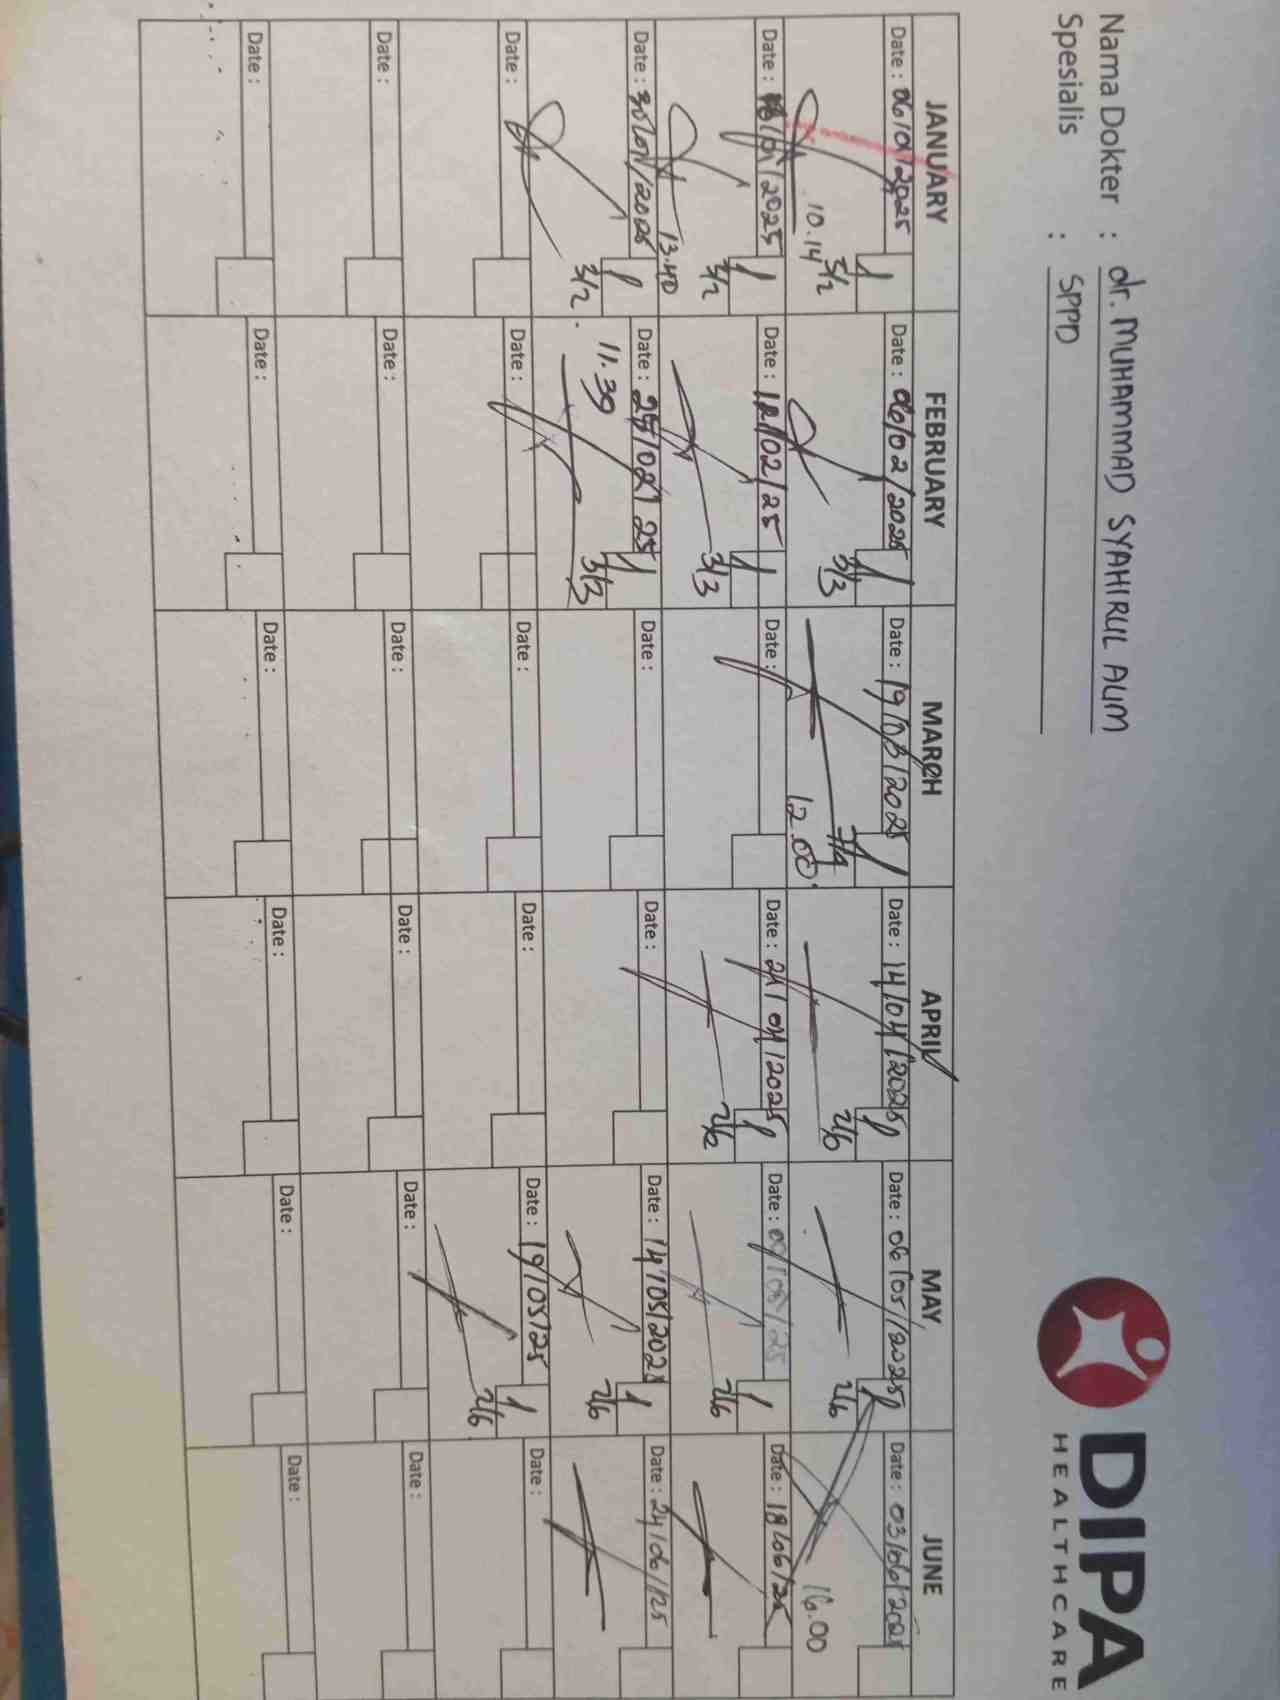 DIPA
HEALTHCARE
Nama Dokter : dr. MUHAMMAD SYAHIRUL ALIM
Spesialis : SPPD
JANUARY FEBRUARY MARCH APRIL MAY JUNE
Date : 06/01/2025 Date : 06/02/2025 Date : 19/03/2025 Date : 14/04/2025 Date : 06/05/2025 Date : 03/06/2025
10.14 3/2 3/3 12.00 7/4 2/6 2/6 16.00
Date : /01/2025 Date : 12/02/25 Date : Date : 24/04/2025 Date : 09/05/25 Date : 18/06/25
13.40 3/2 3/3 2/6 2/6
Date : 30/01/2025 Date : 25/02/25 Date : Date : Date : 14/05/2025 Date : 24/06/25
3/2 11.39 3/3 2/6
Date : Date : Date : Date : Date : 19/05/25 Date :
2/6
Date : Date : Date : Date : Date : Date :
Date : Date : Date : Date : Date : Date :